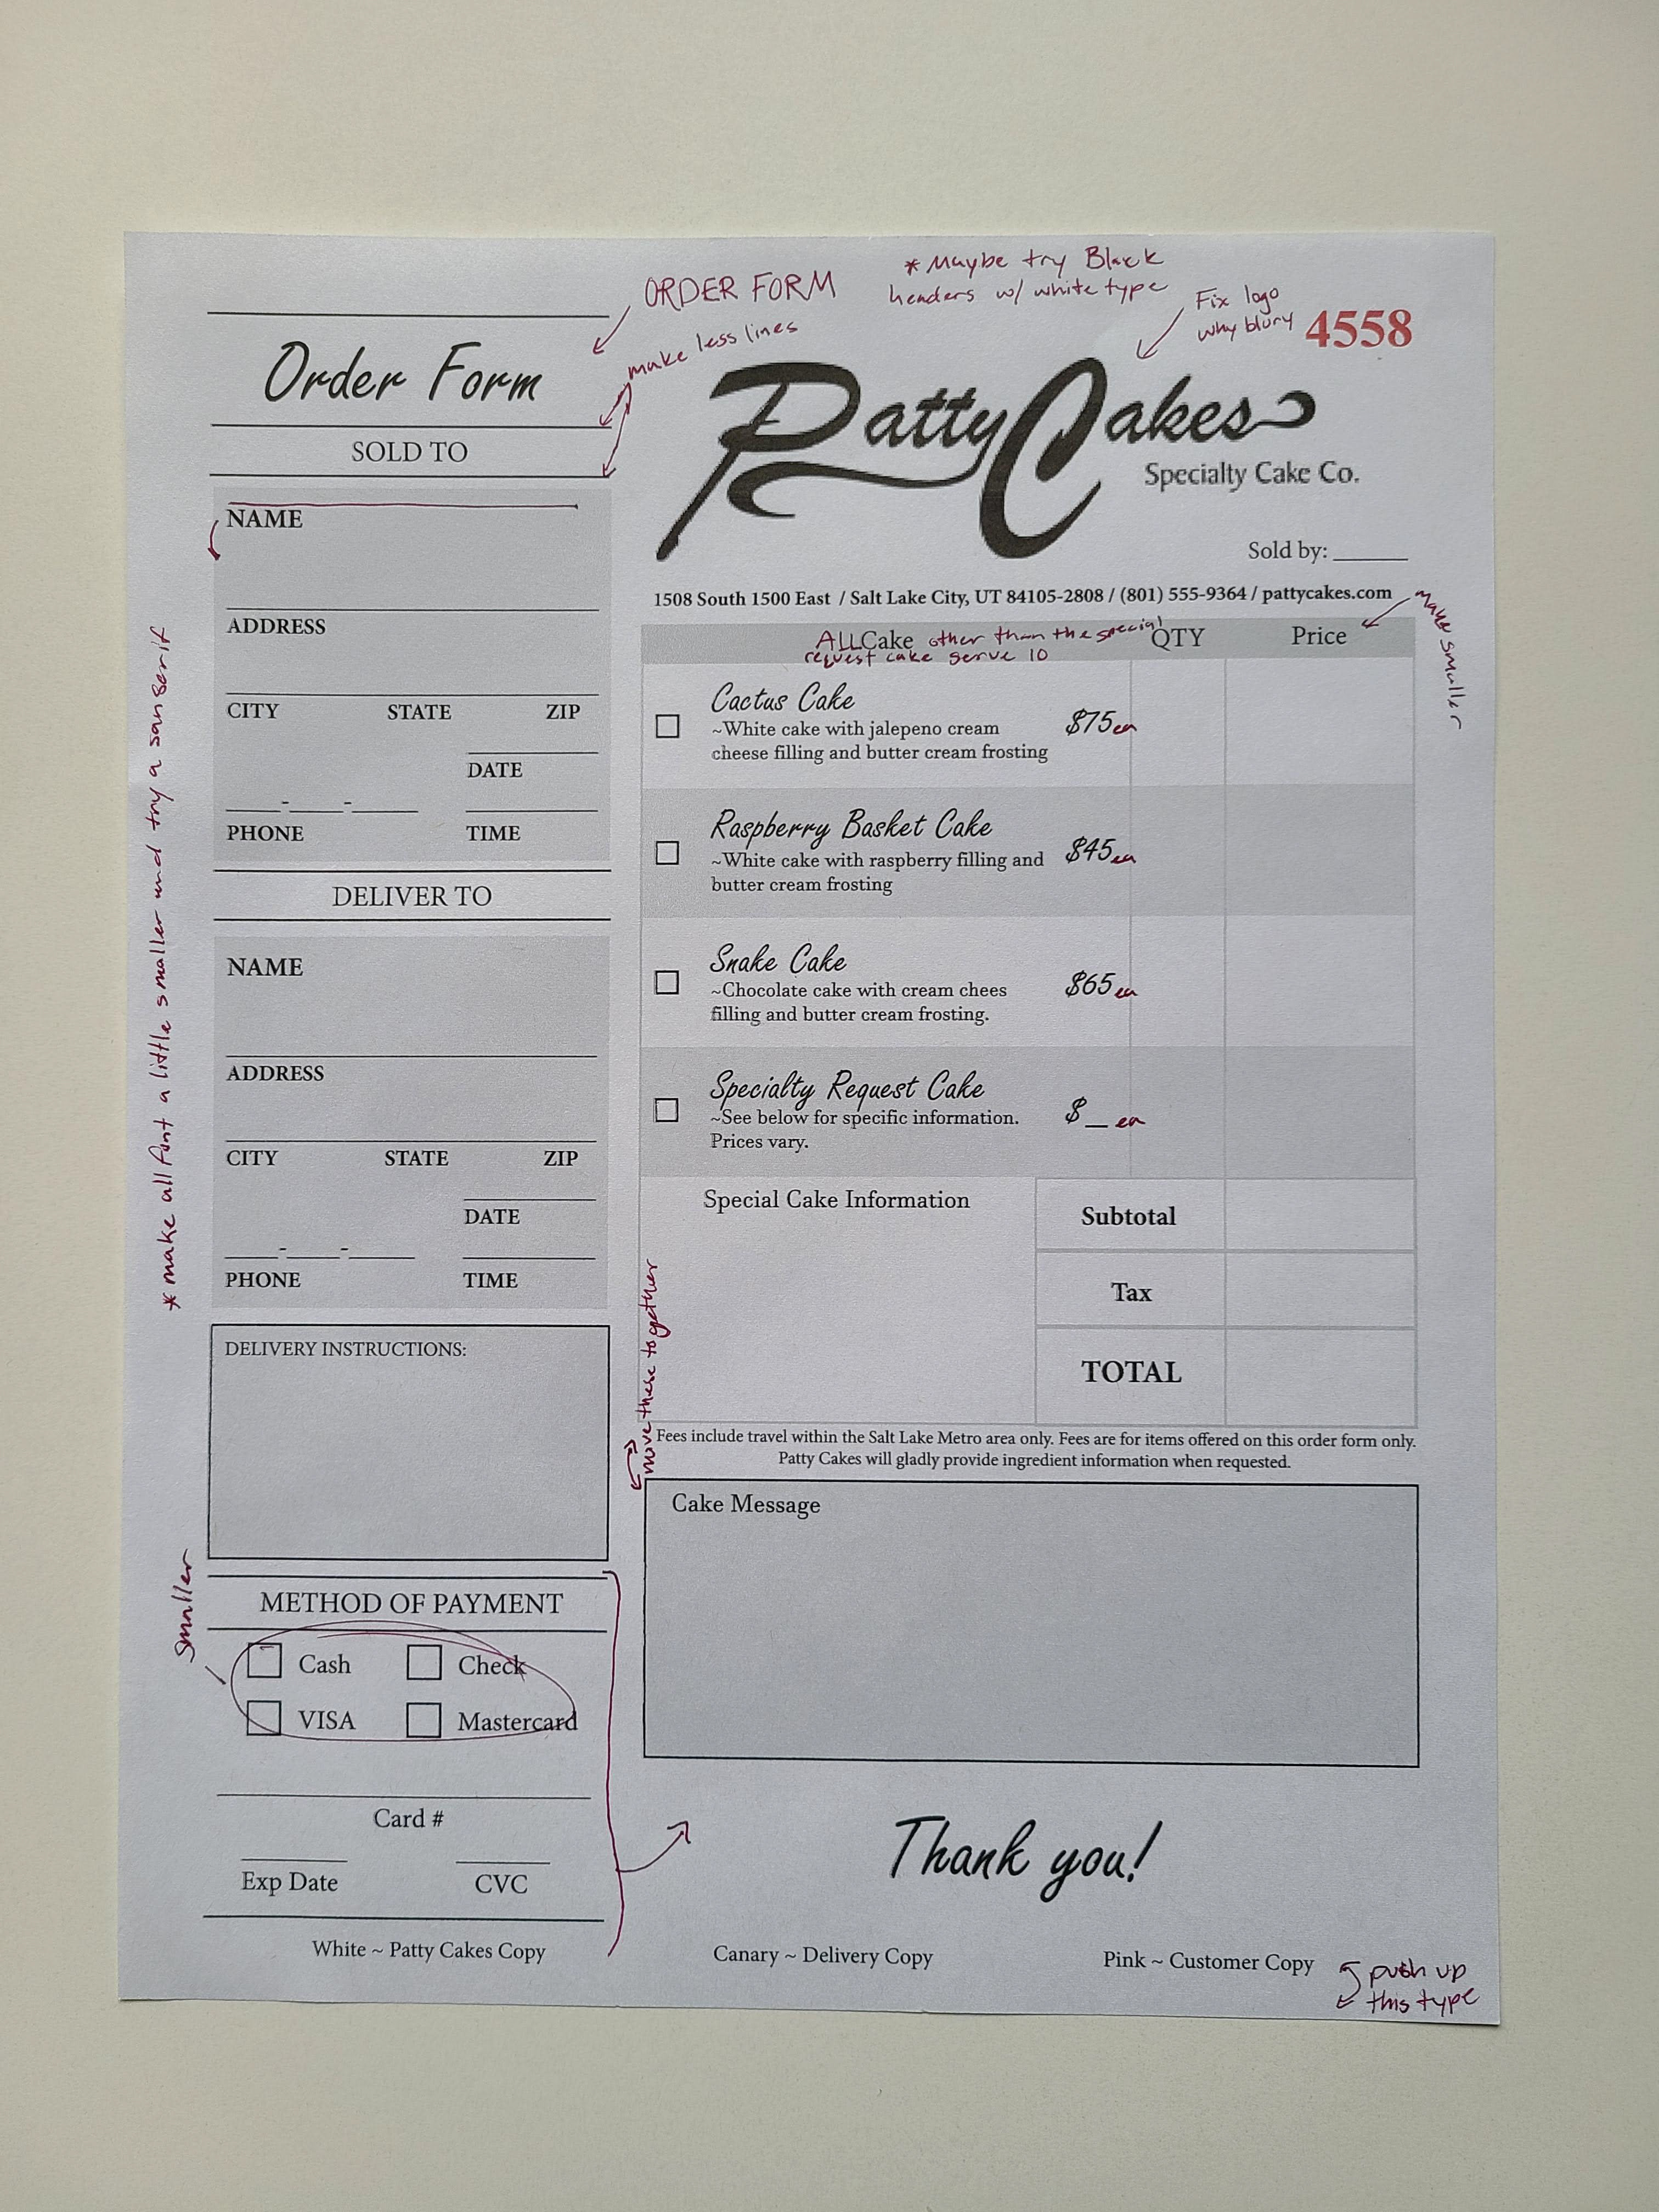 ORDER FORM
* Maybe try Black
headers w/ white type
Fix logo
why blury
4558
make less lines
Order Form
SOLD TO
NAME
ADDRESS
CITY STATE ZIP
DATE
___-___-____
PHONE TIME
DELIVER TO
NAME
ADDRESS
CITY STATE ZIP
DATE
___-___-____
PHONE TIME
DELIVERY INSTRUCTIONS:
* make all font a little smaller and try a san serif
smaller
METHOD OF PAYMENT
Cash Check
VISA Mastercard
Card #
Exp Date CVC
Patty Cakes
Specialty Cake Co.
Sold by: ______
1508 South 1500 East / Salt Lake City, UT 84105-2808 / (801) 555-9364 / pattycakes.com
make smaller
ALL Cake other than the special QTY Price
request cake serve 10
Cactus Cake
~White cake with jalepeno cream $75 ea
cheese filling and butter cream frosting
Raspberry Basket Cake
~White cake with raspberry filling and $45 ea
butter cream frosting
Snake Cake
~Chocolate cake with cream chees $65 ea
filling and butter cream frosting.
Specialty Request Cake
~See below for specific information. $__ ea
Prices vary.
Special Cake Information
Subtotal
Tax
TOTAL
move these together
Fees include travel within the Salt Lake Metro area only. Fees are for items offered on this order form only.
Patty Cakes will gladly provide ingredient information when requested.
Cake Message
Thank you!
White ~ Patty Cakes Copy Canary ~ Delivery Copy Pink ~ Customer Copy
push up
this type